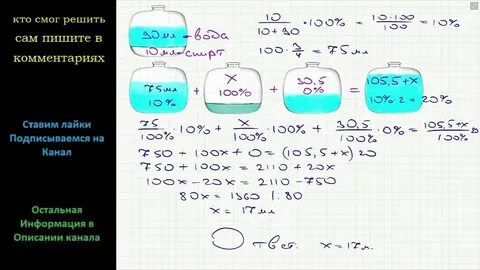 кто смог решить
сам пишите в
комментариях
Ставим лайки
Подписываемся на
Канал
Остальная
Информация в
Описании канала
30мл - вода
10мл - спирт
10/(10+30) · 100% = 10·100/100 = 10%
100 · 3/4 = 75 мл
75мл 10% + x 100% + 30,5 0% = 105,5+x 10%·2=20%
75/100% · 10% + x/100% · 100% + 30,5/100% · 0% = 105,5+x/100% · 20
750 + 100x + 0 = (105,5+x) 20
750 + 100x = 2110 + 20x
100x - 20x = 2110 - 750
80x = 1360 |:80
x = 17 мл
Ответ: x = 17м.